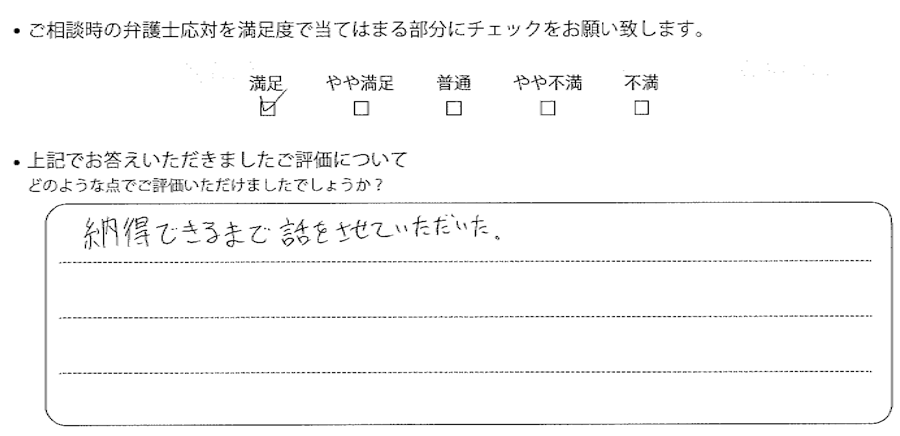 ・ご相談時の弁護士応対を満足度で当てはまる部分にチェックをお願い致します。
満足 やや満足 普通 やや不満 不満
☑ □ □ □ □
・上記でお答えいただきましたご評価について
どのような点でご評価いただけましたでしょうか？
納得できるまで話をさせていただいた。